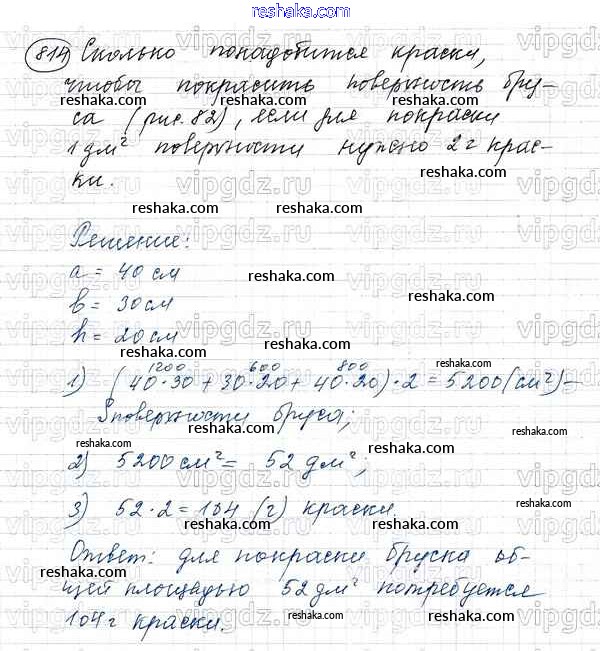 reshaka.com
814 Сколько понадобится краски,
чтобы покрасить поверхность бру-
са (рис. 82), если для покраски
1 дм² поверхности нужно 2 г крас-
ки.
Решение:
a = 40 см
b = 30 см
h = 20 см
1200 600 800
1) (40·30 + 30·20 + 40·20)·2 = 5200 (см²) –
Sповерхности бруса;
2) 5200 см² = 52 дм²;
3) 52·2 = 104 (г) краски.
Ответ: для покраски бруска об-
щей площадью 52 дм² потребуется
104 г краски.
reshaka.com
vipgdz.ru